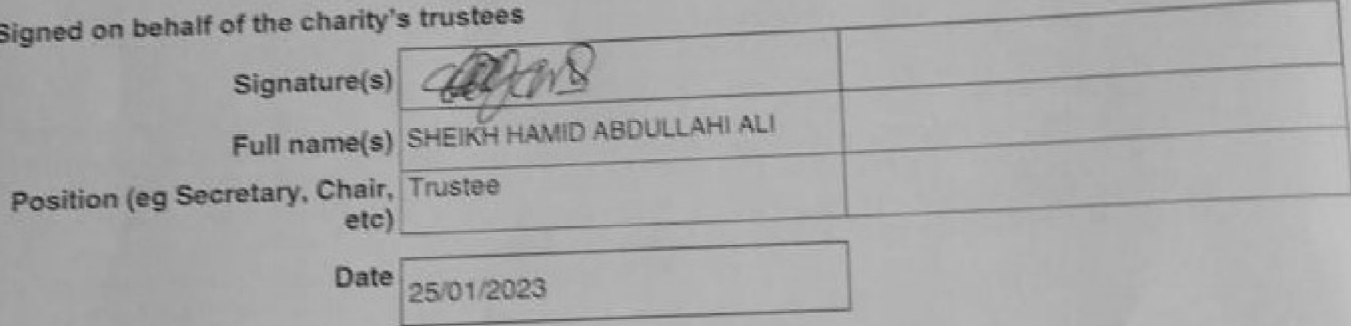 Signed on behalf of the charity's trustees
Signature(s)
Full name(s) SHEIKH HAMID ABDULLAHI ALI
Position (eg Secretary, Chair, Trustee
etc)
Date 25/01/2023